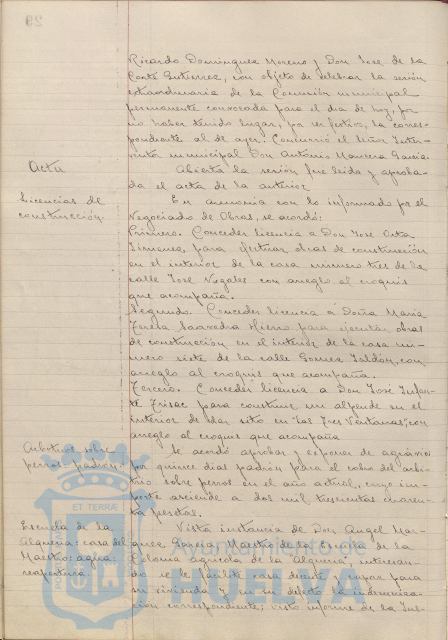 29
Ricardo Dominguez Moreno y Don Jose de la
Corte Gutierrez, con objeto de celebrar la sesión
extraordinaria de la Comisión municipal
permanente convocada para el dia de hoy, por
no haber tenido lugar, por ser festivo, la corres-
pondiente al de ayer. Concurrió el Señor Inter-
ventor municipal Don Antonio Garcia.
Acta
Abierta la sesión fue leida y aproba-
da el acta de la anterior.
Licencias de
construcción.
En armonia con lo informado por el
Negociado de Obras, se acordó:
Primero. Conceder licencia a Don José Orta
Jimenez, para efectuar obras de construcción
en el interior de la casa número tres de la
calle José Nogales con arreglo al croquis
que acompaña.
Segundo. Conceder licencia a Doña Maria
Teresa Saavedra Hierro para ejecutar obras
de construcción en el interior de la casa nú-
mero siete de la calle Gomez Jaldón, con
arreglo al croquis que acompaña.
Tercero. Conceder licencia a Don José Infan-
te para construir un alpende en el
interior de sitó en "Las Tres Ventanas", con
arreglo al croquis que acompaña
Arbitrios sobre
perros = padron.
Se acordó aprobar y exponer de agravios
por quince dias padrón para el cobro del arbi-
trio sobre perros en el año actual, cuyo im-
porte asciende a dos mil trescientas cuaren-
ta pesetas.
Escuela de la
Alqueria: casa del
Maestro: agua:
reapertura
Vista instancia de Don Angel Mar-
quez Garcia, Maestro de la Escuela de la
"Colonia agricola de la Alqueria", interesan-
do se le facilite casa decente y capaz para
su vivienda y en su defecto la indemniza-
ción correspondiente; visto informe de la Ins-
ET TERRÆ
Ayuntamiento de
HUELVA